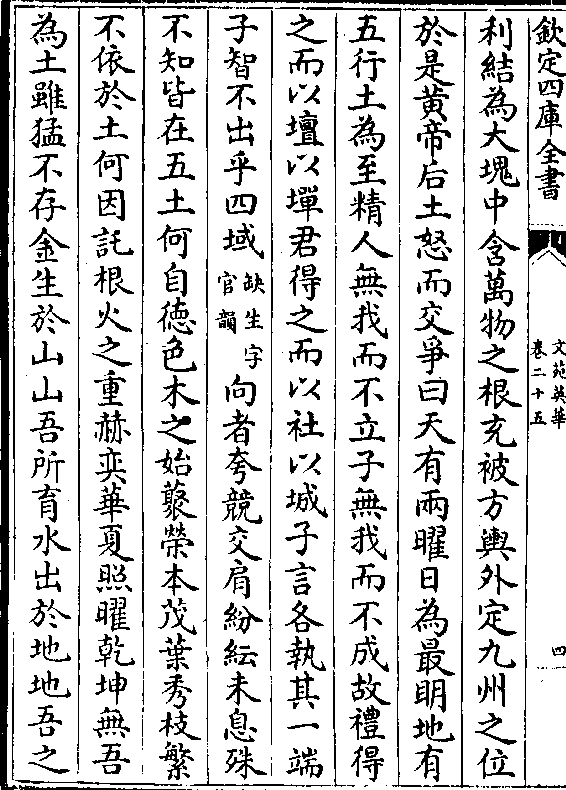 欽定四庫全書
文苑英華
卷二十五
四
利結為大塊中含萬物之根充被方輿外定九州之位
於是黃帝后土怒而交爭曰天有兩曜日為最明地有
五行土為至精人無我而不立子無我而不成故禮得
之而以壇以墠君得之而以社以城子言各執其一端
子智不出乎四域
缺生字
官韻
向者夸競交肩紛紜未息殊
不知皆在五土何自德色木之始藂榮本茂葉秀枝繁
不依於土何因託根火之重赫奕華夏照曜乾坤無吾
為土雖猛不存金生於山山吾所育水出於地地吾之